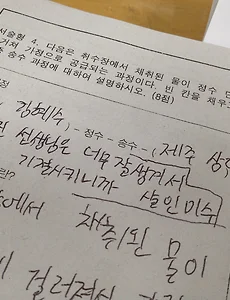 서술형 4. 다음은 취수장에서 채취된 물이 정수 단
거쳐 가정으로 공급되는 과정이다. 빈 칸을 채우
송수 과정에 대하여 설명하시오. (8점)
김현수 - 정수 - 송수 - (제주
선생님은 너무 잘생겨서
기절시키니까 살인미수
에서 채취된 물이
걸러져서